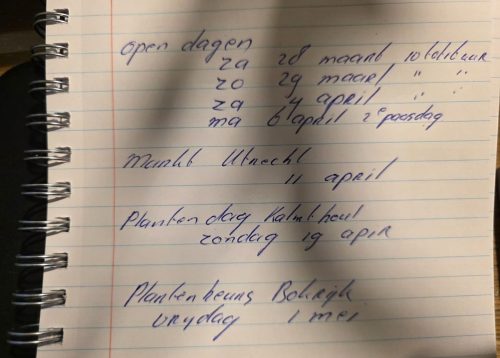 open dagen
za 28 maart 10 tot 16 uur
zo 29 maart " "
za 4 april " "
ma 6 april 2e paasdag
Markt Utrecht
11 april
Plantendag Kalmthout
zondag 19 april
Plantenbeurs Bokrijk
vrijdag 1 mei